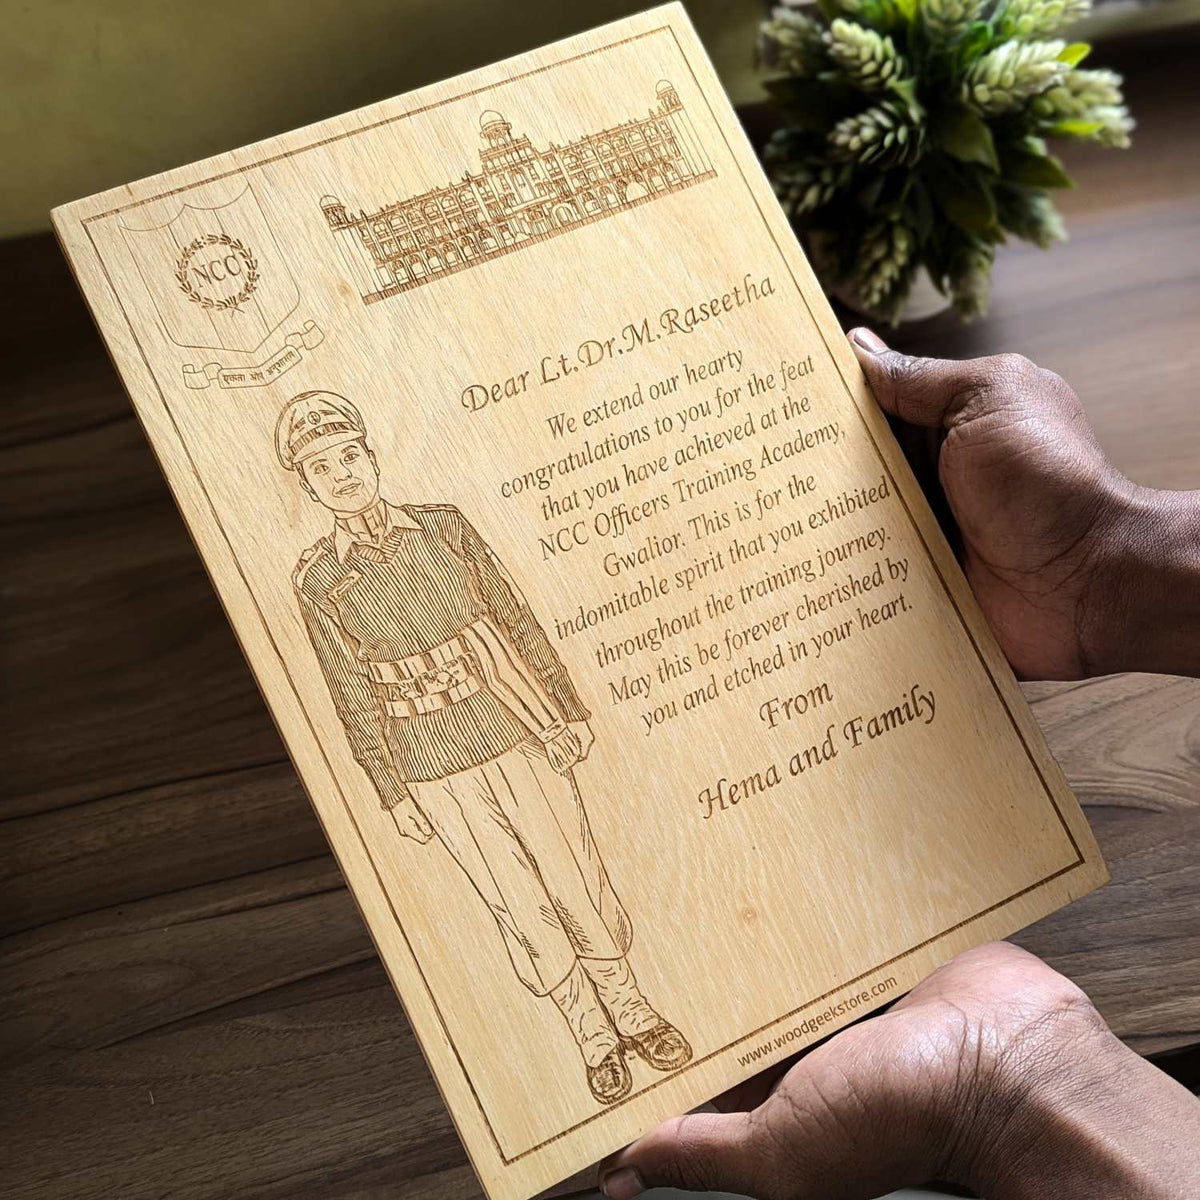 NCC
एकता और अनुशासन
Dear Lt.Dr.M.Raseetha
We extend our hearty
congratulations to you for the feat
that you have achieved at the
NCC Officers Training Academy,
Gwalior. This is for the
indomitable spirit that you exhibited
throughout the training journey.
May this be forever cherished by
you and etched in your heart.
From
Hema and Family
www.woodgeekstore.com